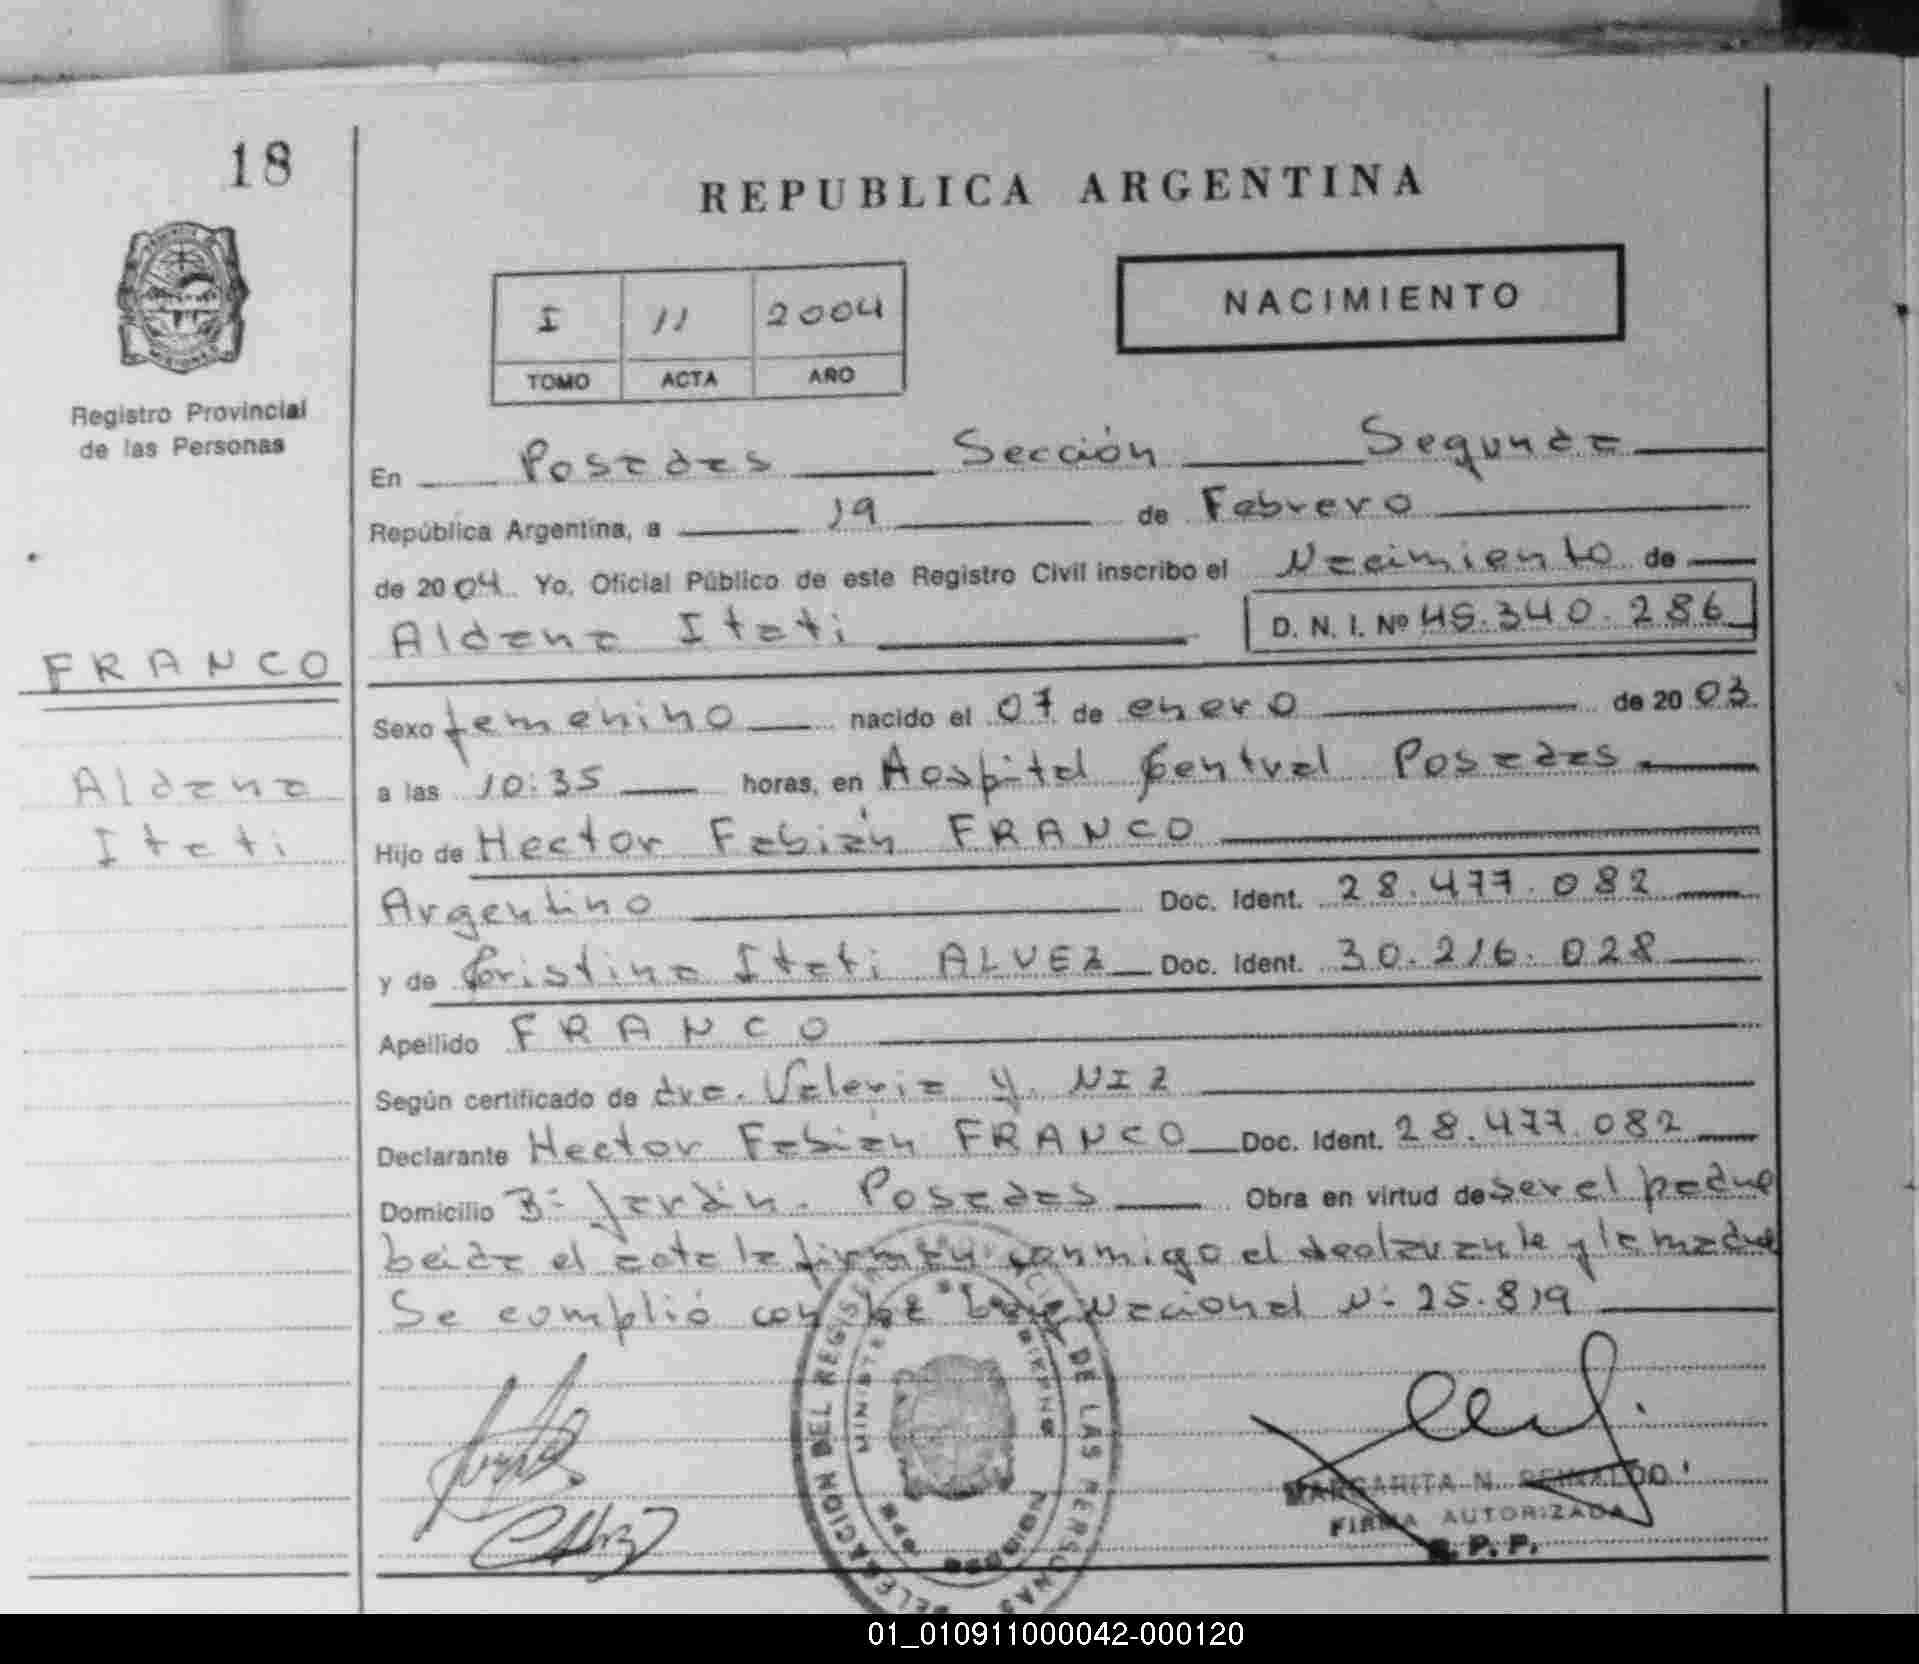 18
REPUBLICA ARGENTINA
I 11 2004
TOMO ACTA AÑO
NACIMIENTO
Registro Provincial
de las Personas
En Posadas Sección Segunda
República Argentina, a 19 de Febrero
de 2004. Yo, Oficial Público de este Registro Civil inscribo el Nacimiento de
Aldana Itati D. N. I. Nº 45.340.286
FRANCO
Sexo femenino nacido el 07 de enero de 2003.
Aldana
Itati
a las 10:35 horas, en Hospital Central Posadas
Hijo de Hector Fabián FRANCO
Argentino Doc. Ident. 28.477.082
y de Cristina Itati ALVEZ Doc. Ident. 30.216.028
Apellido FRANCO
Según certificado de dra. Valeria Y. NIZ
Declarante Hector Fabián FRANCO Doc. Ident. 28.477.082
Domicilio Bº Jardín. Posadas Obra en virtud de ser el padre
leida el acta la firman conmigo el declarante y la madre
Se cumplió con la Ley Nacional Nº 25.819
DELEGACION DEL REGISTRO PROVINCIAL DE LAS PERSONAS
MINISTERIO DE GOBIERNO
MISIONES
MARGARITA N. REINALDO
FIRMA AUTORIZADA
R. P. P.
01_010911000042-000120